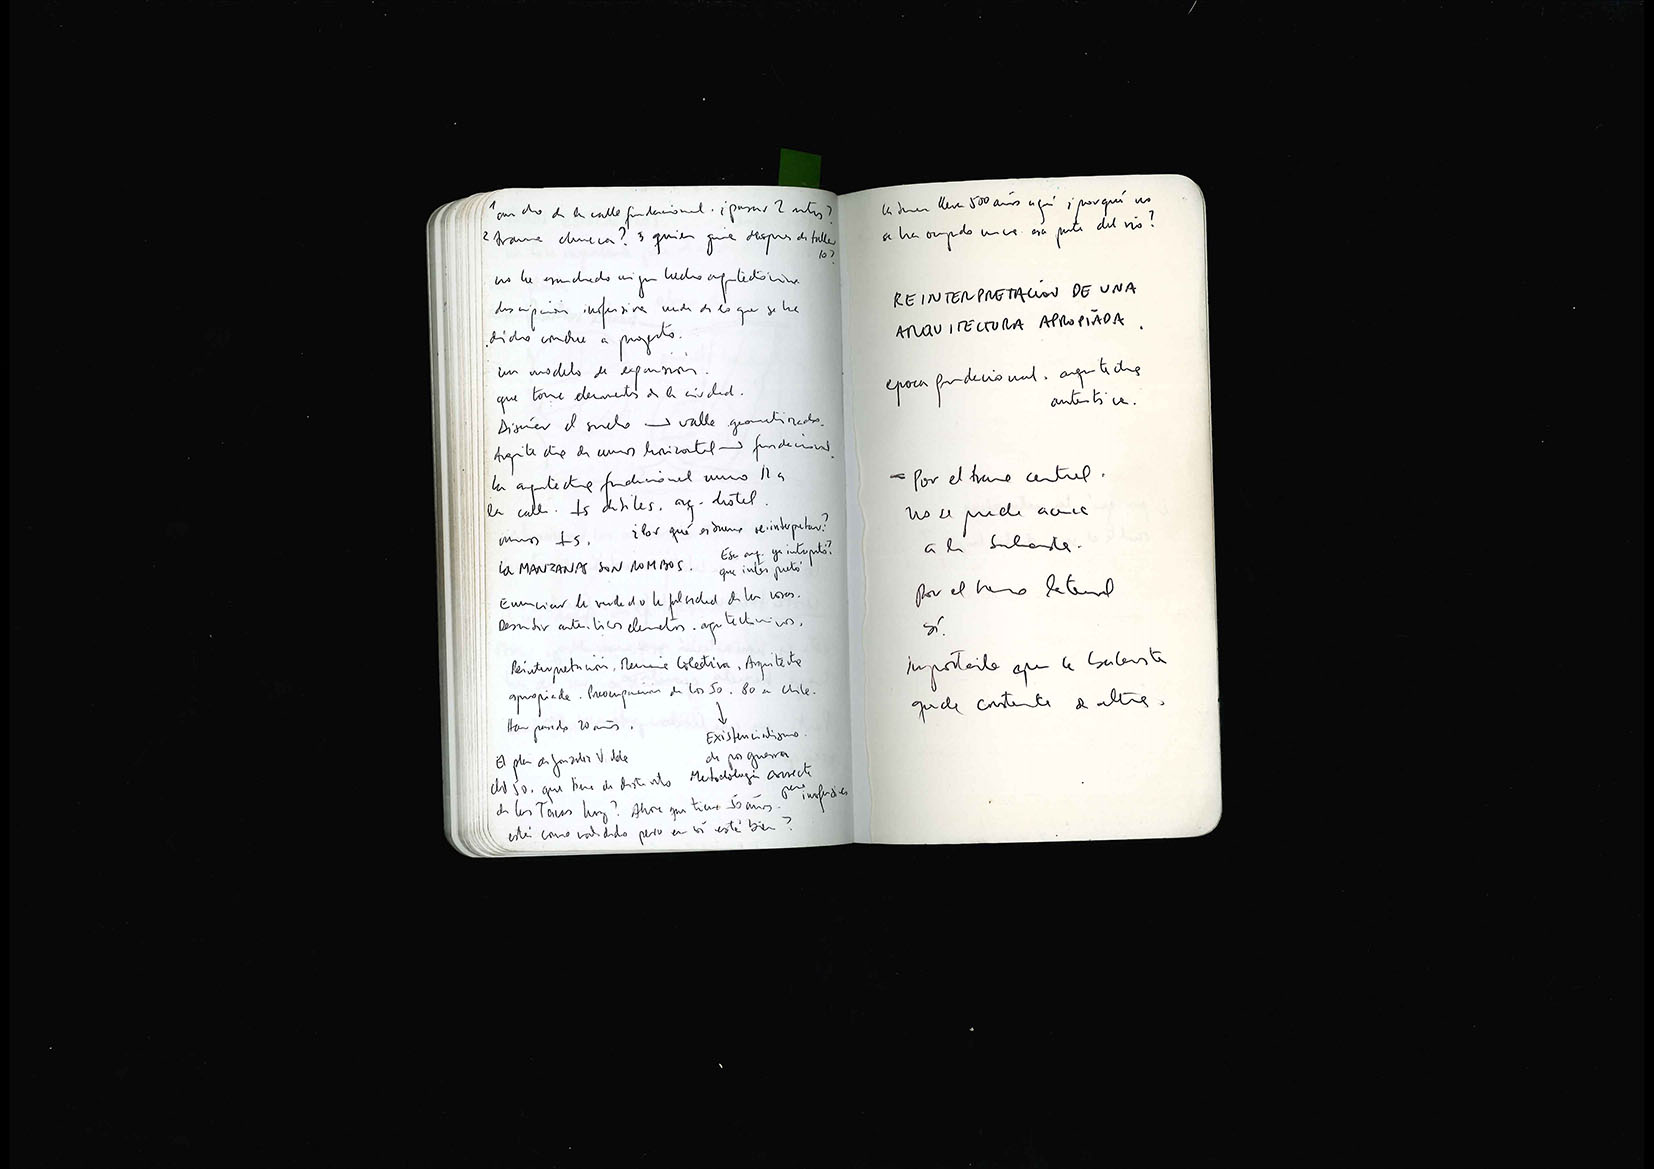 1 ancho de la calle fundacional. ¿pasar 2 autos?
2 trama chueca? 3 quien gana despues de taller
10?
no he escuchado ningun hecho arquitectónico
descripción inofensiva nada de lo que se ha
dicho conduce a proyecto.
un modelo de expansión.
que tome elementos de la ciudad.
Diseñar el suelo → valle geometrizado.
Arquitectura de muros horizontal → fundacional.
la arquitectura fundacional muro // a
la calle. ts débiles, arq. hotel.
muros ts. ¿Por qué es bueno reinterpretar?
La MANZANAS SON ROMBOS. Esa arq. ya interpretó?
que interpretó
Enunciar la verdad o la falsedad de las cosas.
Descubrir auténticos elementos. arquitectónicos.
Reinterpretación, Memoria Colectiva, Arquitectura
apropiada. Preocupación de los 50. 80 en Chile.
Han pasado 20 años.
Existencialismo
de posguerra
Metodología correcta
pero inofensiva
El plan de González Videla
del 50. que tiene de distinto
de las Tacas hoy? Ahora que tiene 50 años.
esté como validado pero en sí está bien?
La Serena lleva 500 años aquí ¿porqué no
se ha ocupado nunca esa parte del río?
REINTERPRETACIÓN DE UNA
ARQUITECTURA APROPIADA.
epoca fundacional. arquitectura
autentica.
- Por el tramo central.
No se puede acceder
a la baranda.
por el tramo lateral
sí.
importante que la balaustra
quede constante de altura.